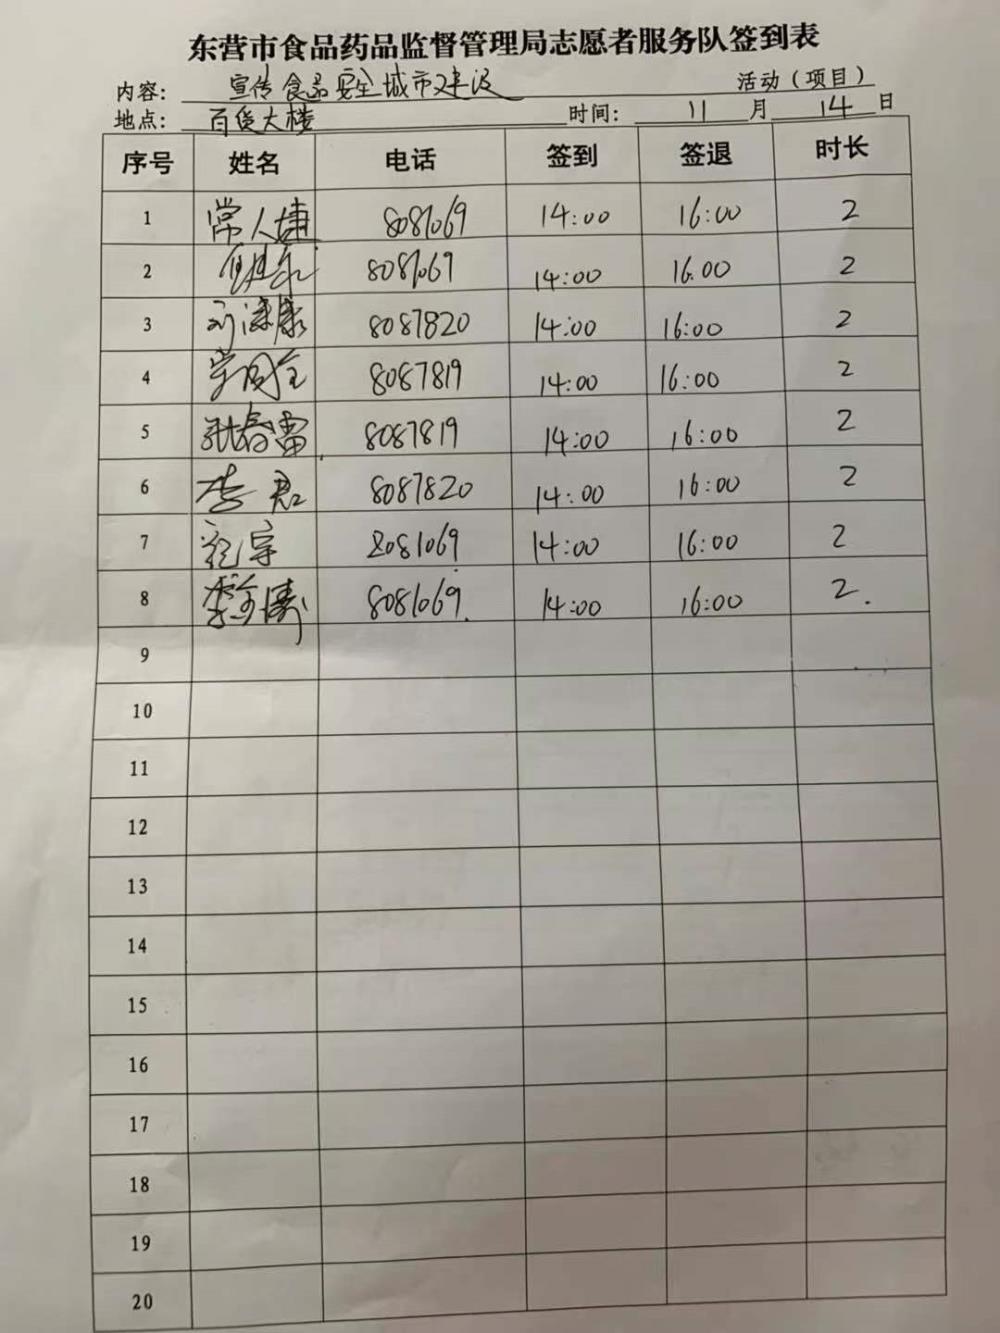 东营市食品药品监督管理局志愿者服务队签到表
内容: 宣传食品安全城市建设 活动（项目）
地点: 百货大楼 时间: 11 月 14 日
序号 姓名 电话 签到 签退 时长
1 常人婕 8081069 14:00 16:00 2
2 8081069 14:00 16.00 2
3 8087820 14:00 16:00 2
4 8087819 14:00 16:00 2
5 张春雷 8087819 14:00 16:00 2
6 李君 8087820 14:00 16:00 2
7 8081069 14:00 16:00 2
8 8081069. 14:00 16:00 2.
9
10
11
12
13
14
15
16
17
18
19
20